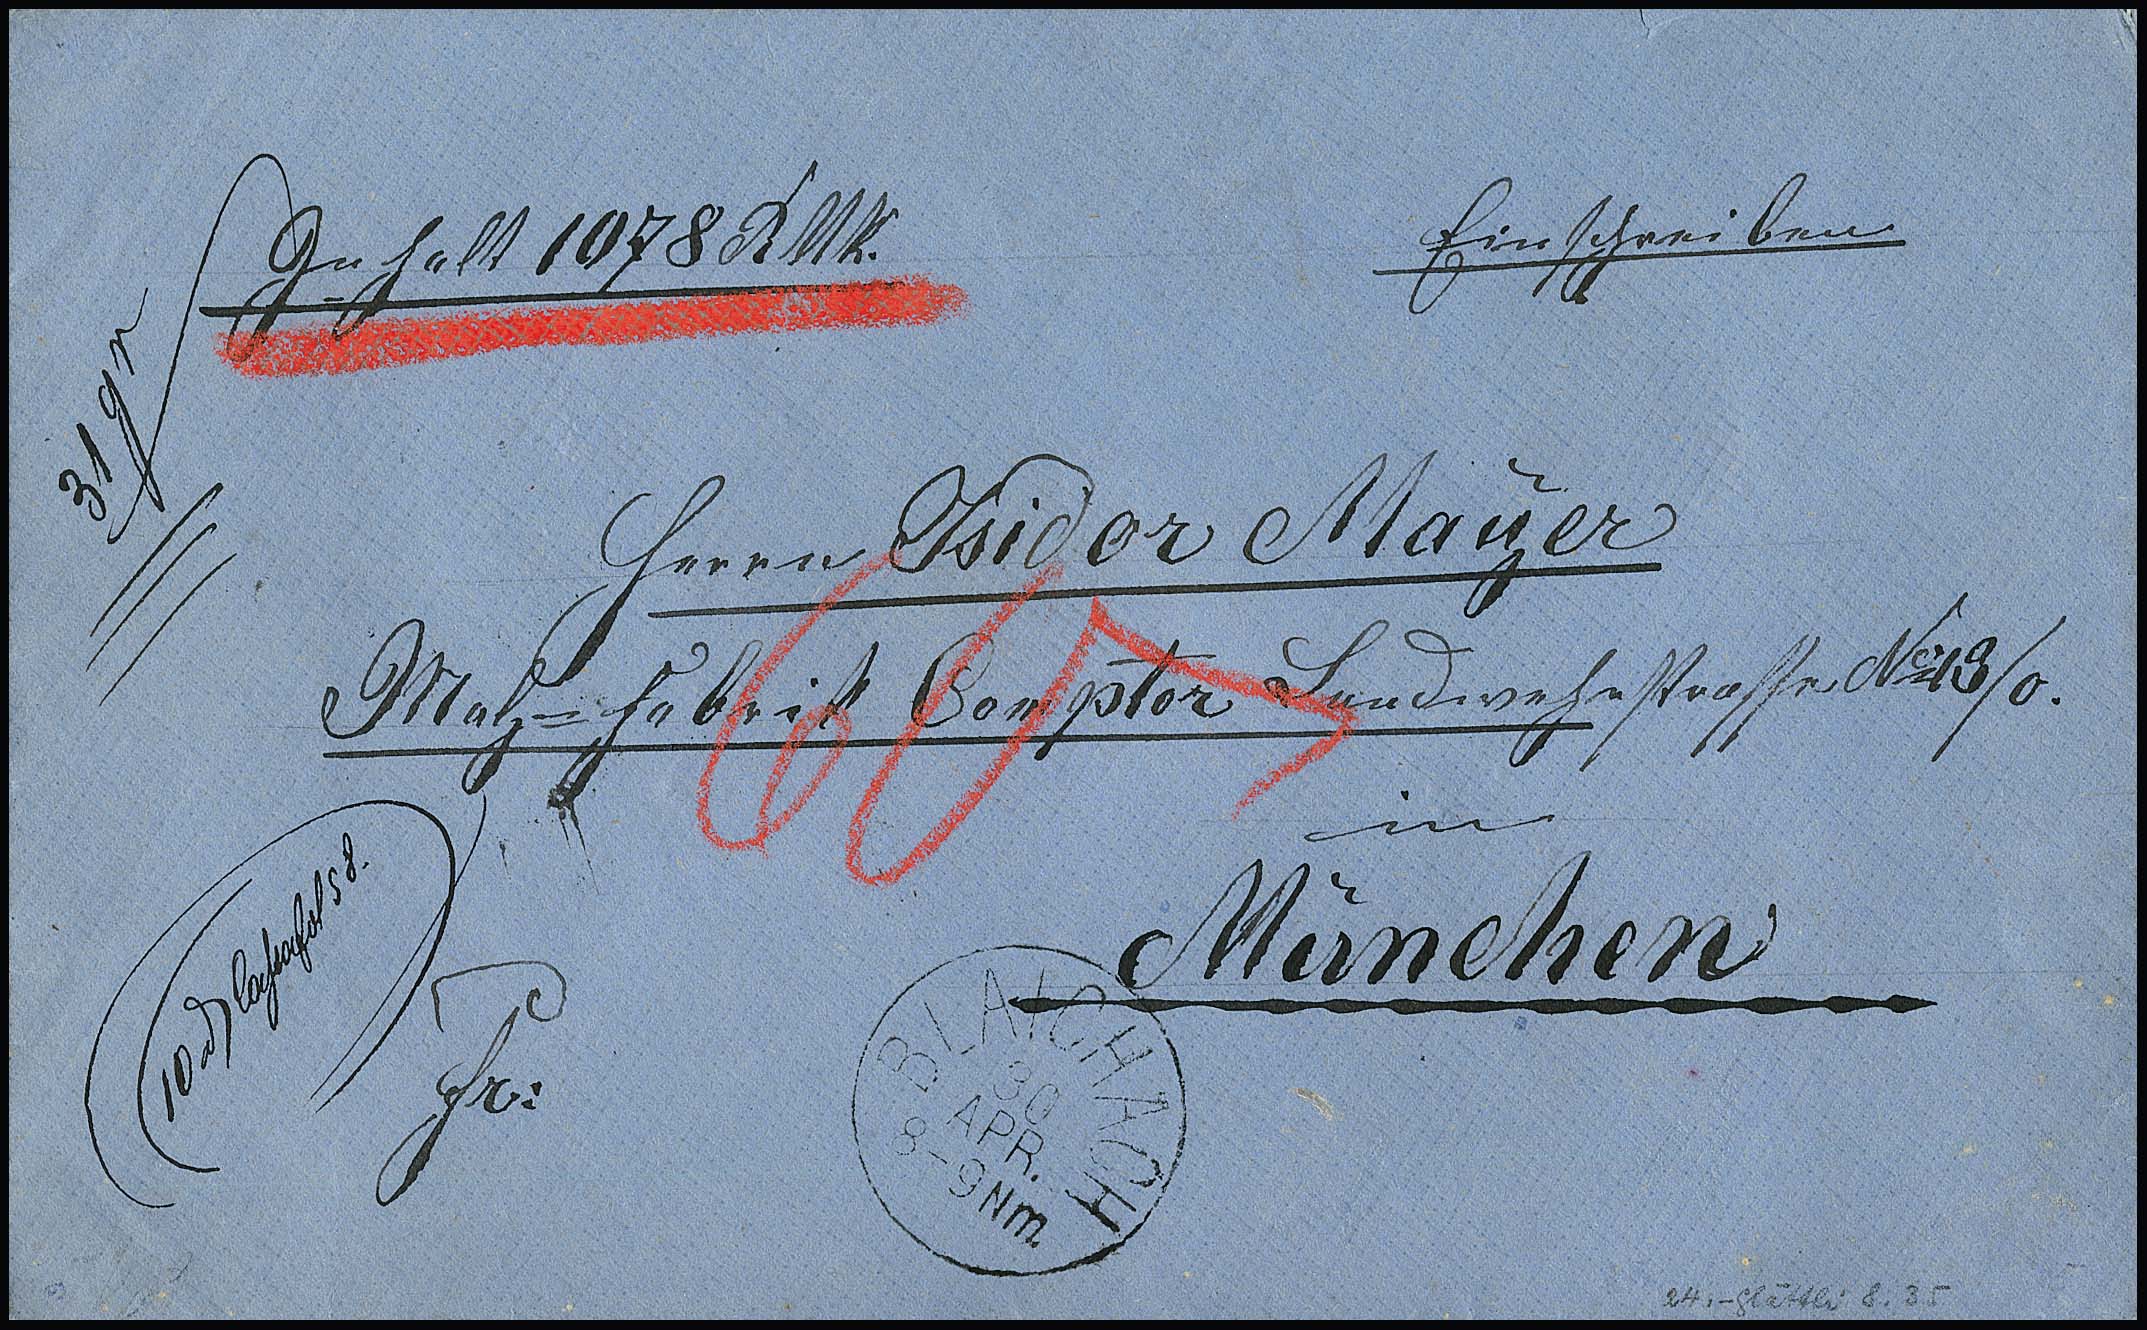 Inhalt 1078 RMk.
Einschreiben
31 gr
Herrn Isidor Mayer
Malz=Fabrik Comptor Landwehrstrasse No 13/0.
in
München
10 58.
Fr:
BLAICHACH
30
APR.
8-9 Nm.
24.- 8.35